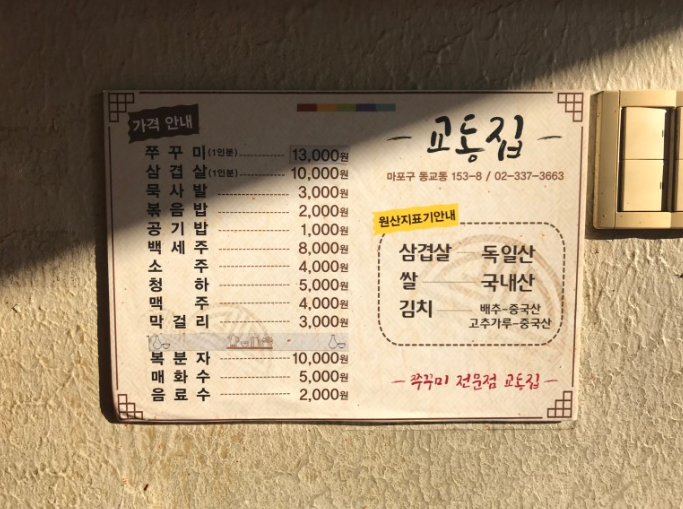 가격 안내
쭈꾸미(1인분) 13,000원
삼겹살(1인분) 10,000원
묵사발 3,000원
볶음밥 2,000원
공기밥 1,000원
백세주 8,000원
소주 4,000원
청하 5,000원
맥주 4,000원
막걸리 3,000원
복분자 10,000원
매화수 5,000원
음료수 2,000원
교동집
마포구 동교동 153-8 / 02-337-3663
원산지표기안내
삼겹살 독일산
쌀 국내산
김치 배추-중국산
고추가루-중국산
쭈꾸미 전문점 교동집